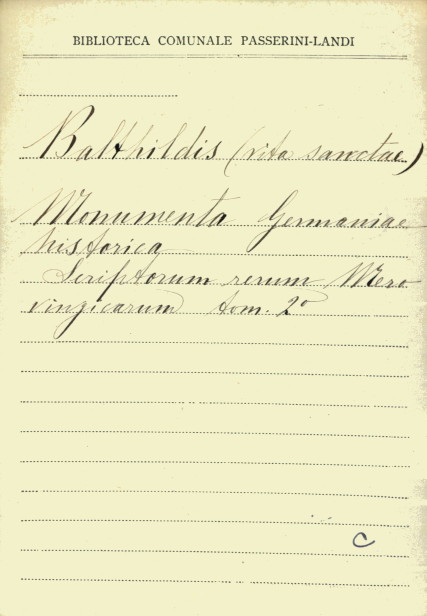 BIBLIOTECA COMUNALE PASSERINI-LANDI
Balthildis (vita sanctae)
Monumenta Germaniae
historica
Scriptorum rerum Mero
vingicarum tom. 2º
C